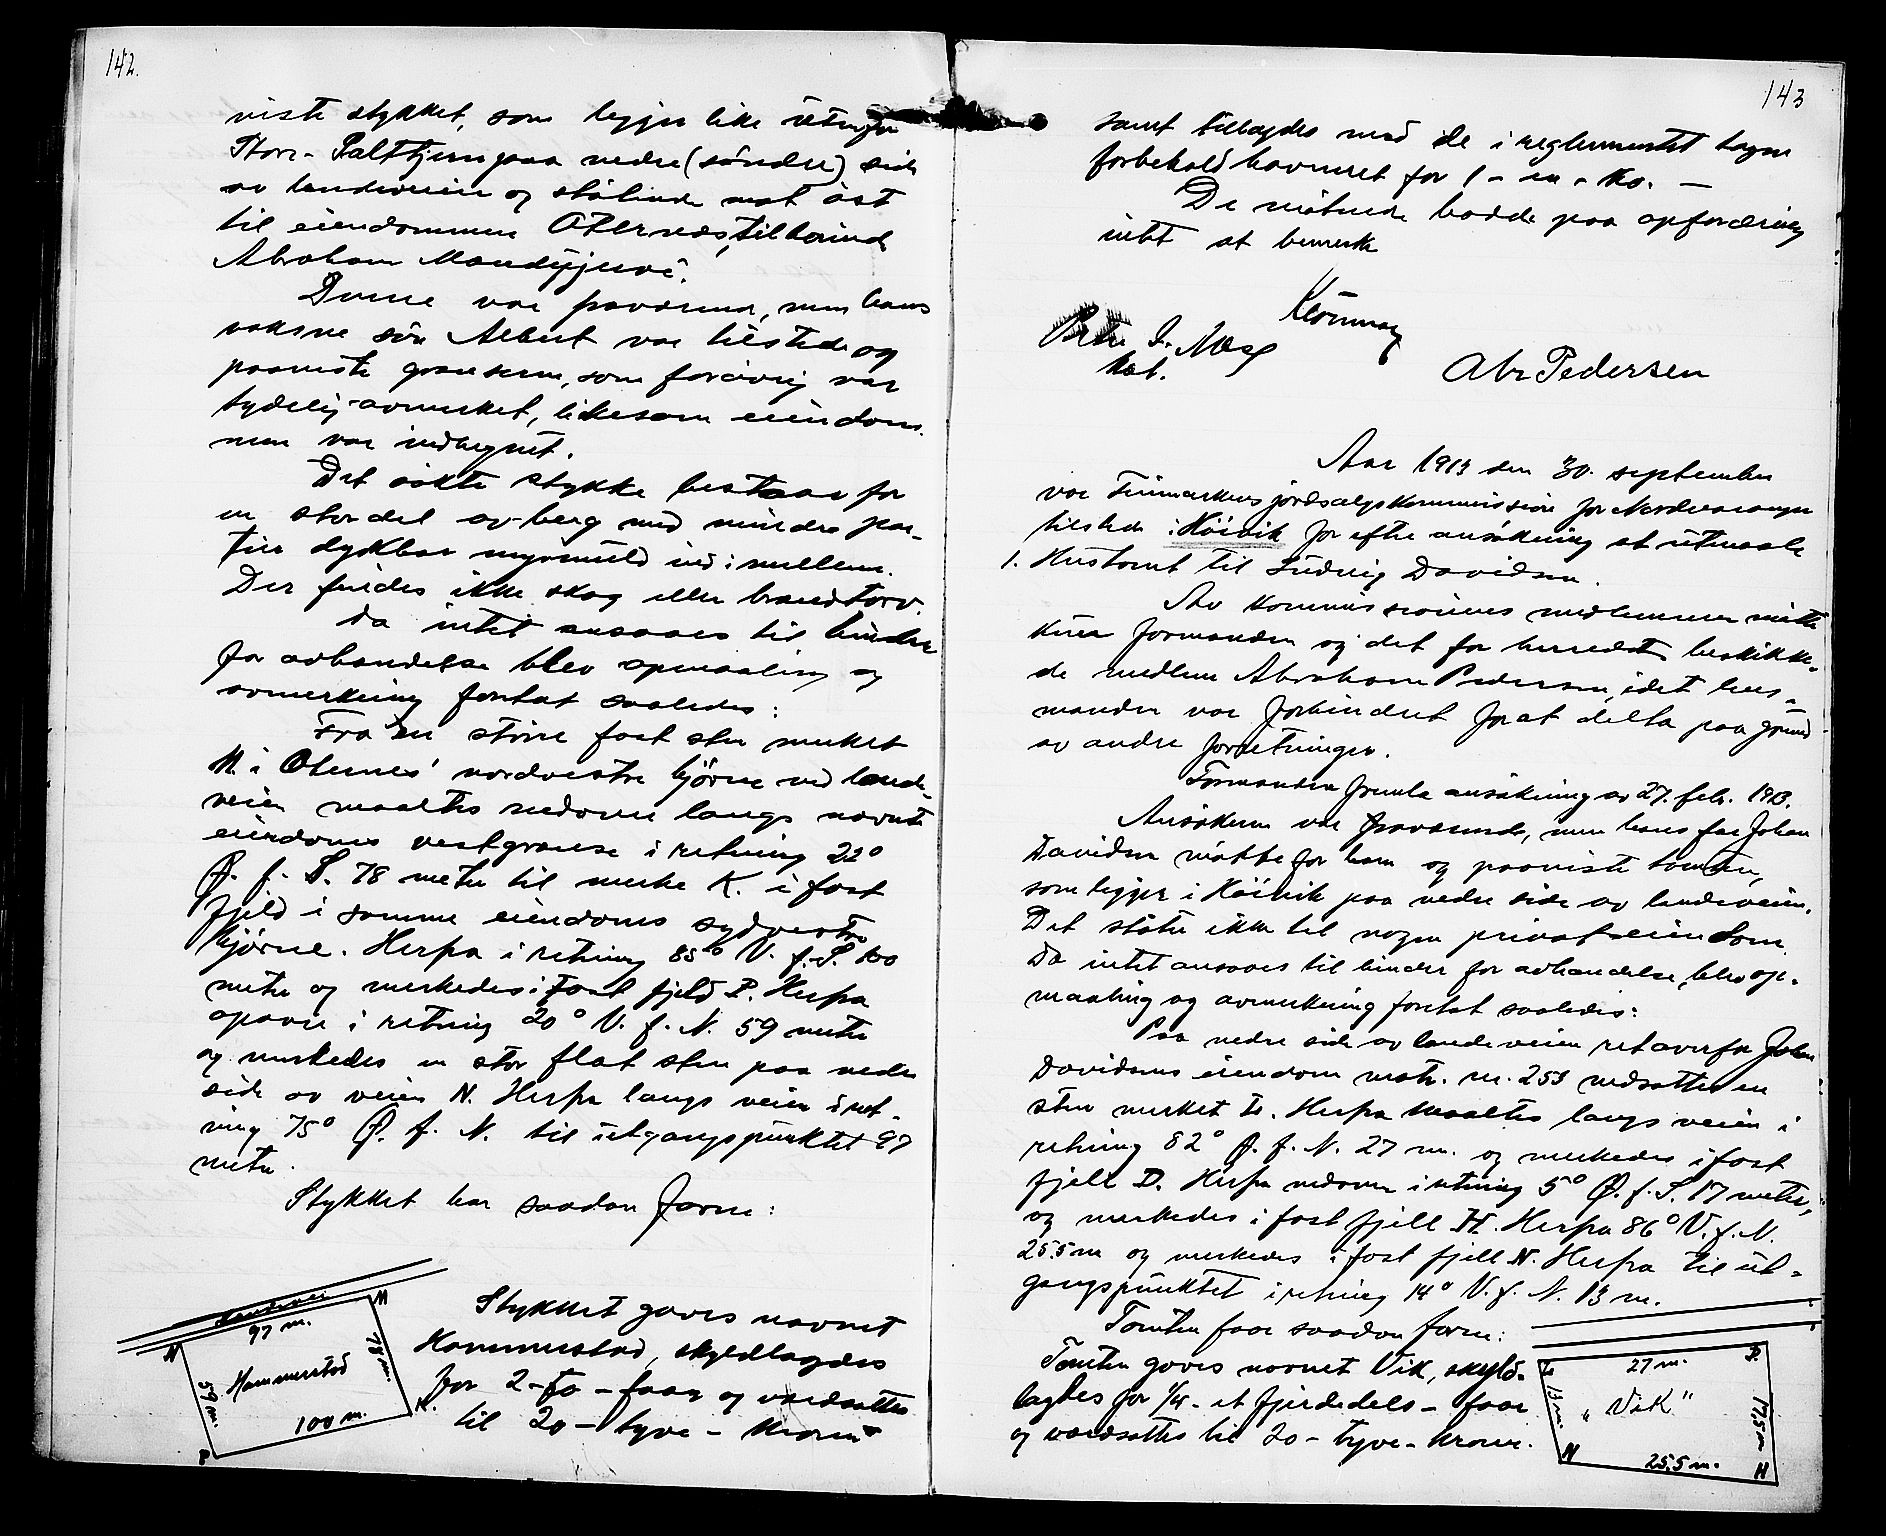 142.
viste stykket, som ligger like utenfor
Store-Salttjern paa nedre (søndre) side
av landeveien og støtende mot øst
til eiendommen Oternes, tilhørende
Abraham
Denne var fraværende, men hans
voksne søn Albert var tilstede og
paaviste grænserne, som forøvrig var
tydelig avmerket, likesom eiendom-
men var indhegnet.
Det søkte stykke bestaar for
en stor del av berg med mindre par-
tier dyrkbar myrmuld ind imellem.
Der findes ikke skog eller brændtorv.
Da intet ansaaes til hinder
for avhændelse blev opmaaling og
avmerkning foretat saaledes:
Fra en større fast sten merket
M. i Oternes' nordvestre hjørne ved lande-
veien maaltes nedover langs nævnte
eiendoms vestgrænse i retning 22°
Ø. f. S. 78 meter til merke K. i fast
fjeld i samme eiendoms sydvestre
hjørne. Herfra i retning 85° V. f. S. 100
meter og merkedes i fast fjeld P. Herfra
opover i retning 20° V. f. N. 59 meter
og merkedes en stor flat sten paa nedre
side av veien N. Herfra langs veien i ret-
ning 75° Ø. f. N. til utgangspunktet 97
meter.
Stykket har saadan form:
Landevei
97 m.
M
78 m.
K.
N
59 m.
Hammerstad
100 m.
P
Stykket gaves navnet
Hammerstad, skyldlagdes
for 2 - to - øre og værdsattes
til 20 - tyve - kroner
143
samt tillagdes med de i reglementet tagne
forbehold havneret for 1 - en - ko. —
De møtende hadde paa opfordring
intet at bemerke
Abr Pedersen
Aar 1913 den 30. september
var Finmarkens jordsalgskommission for Nordvaranger
tilstede i Høivik for efter ansøkning at utmaale
1. Hustomt til Ludvig Davidsen.
Av kommissionens medlemmer møtte
kun formanden og det for herredet beskikke-
de medlem Abraham Pedersen, idet lens-
manden var forhindret for at delta paa grund
av andre forretninger.
Formanden fremla ansøkning av 27. febr. 1913.
Ansøkeren var fraværende, men hans far Johan
Davidsen møtte for ham og paaviste tomten,
som ligger i Høivik paa nedre side av landeveien.
Det støter ikke til nogen privat eiendom.
Da intet ansaaes til hinder for avhændelse, blev op-
maaling og avmerkning foretat saaledes:
Paa nedre side av landeveien ret overfor Johan
Davidsens eiendom matr. nr. 253 nedsattes en
sten merket L. Herfra maaltes langs veien i
retning 82° Ø. f. N. 27 m. og merkedes i fast
fjell D. Herfra nedover i retning 5° Ø. f. S. 17 meter,
og merkedes i fast fjell H. Herfra 86° V. f. N.
25.5 m og merkedes i fast fjell N. Herfra til ut-
gangspunktet i retning 14° V. f. N. 13 m.
Tomten faar saadan form:
Tomten gaves navnet Vik, skyld-
lagdes for 1/4 - et fjerdedels - øre
og værdsattes til 20 - tyve - kroner.
L
27 m.
D.
13 m.
"Vik"
17,5 m
N
25.5 m.
H